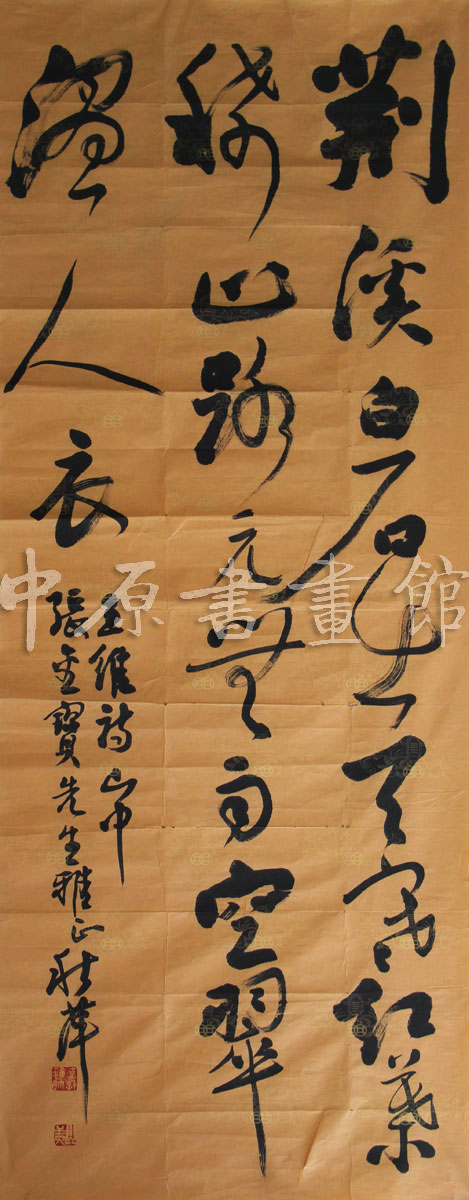 荆溪白石出天寒紅葉
稀山路元無雨空翠
濕人衣
王維詩山中
張金寶先生雅正
中原書畫館